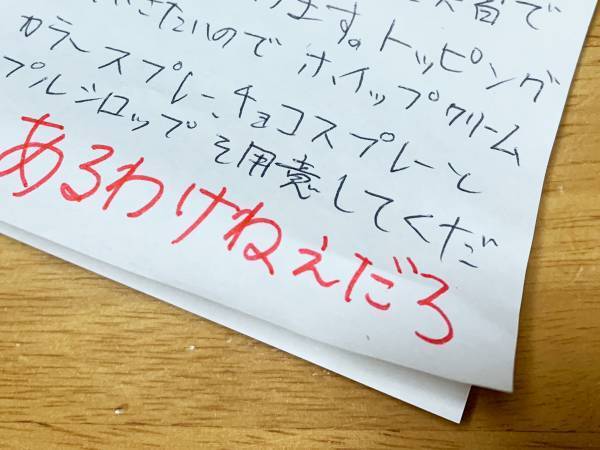 で
ます。トッピング
きたいので ホイップクリーム
カラースプレー、チョコスプレーと
プルシロップを用意してくだ
あるわけねぇだろ